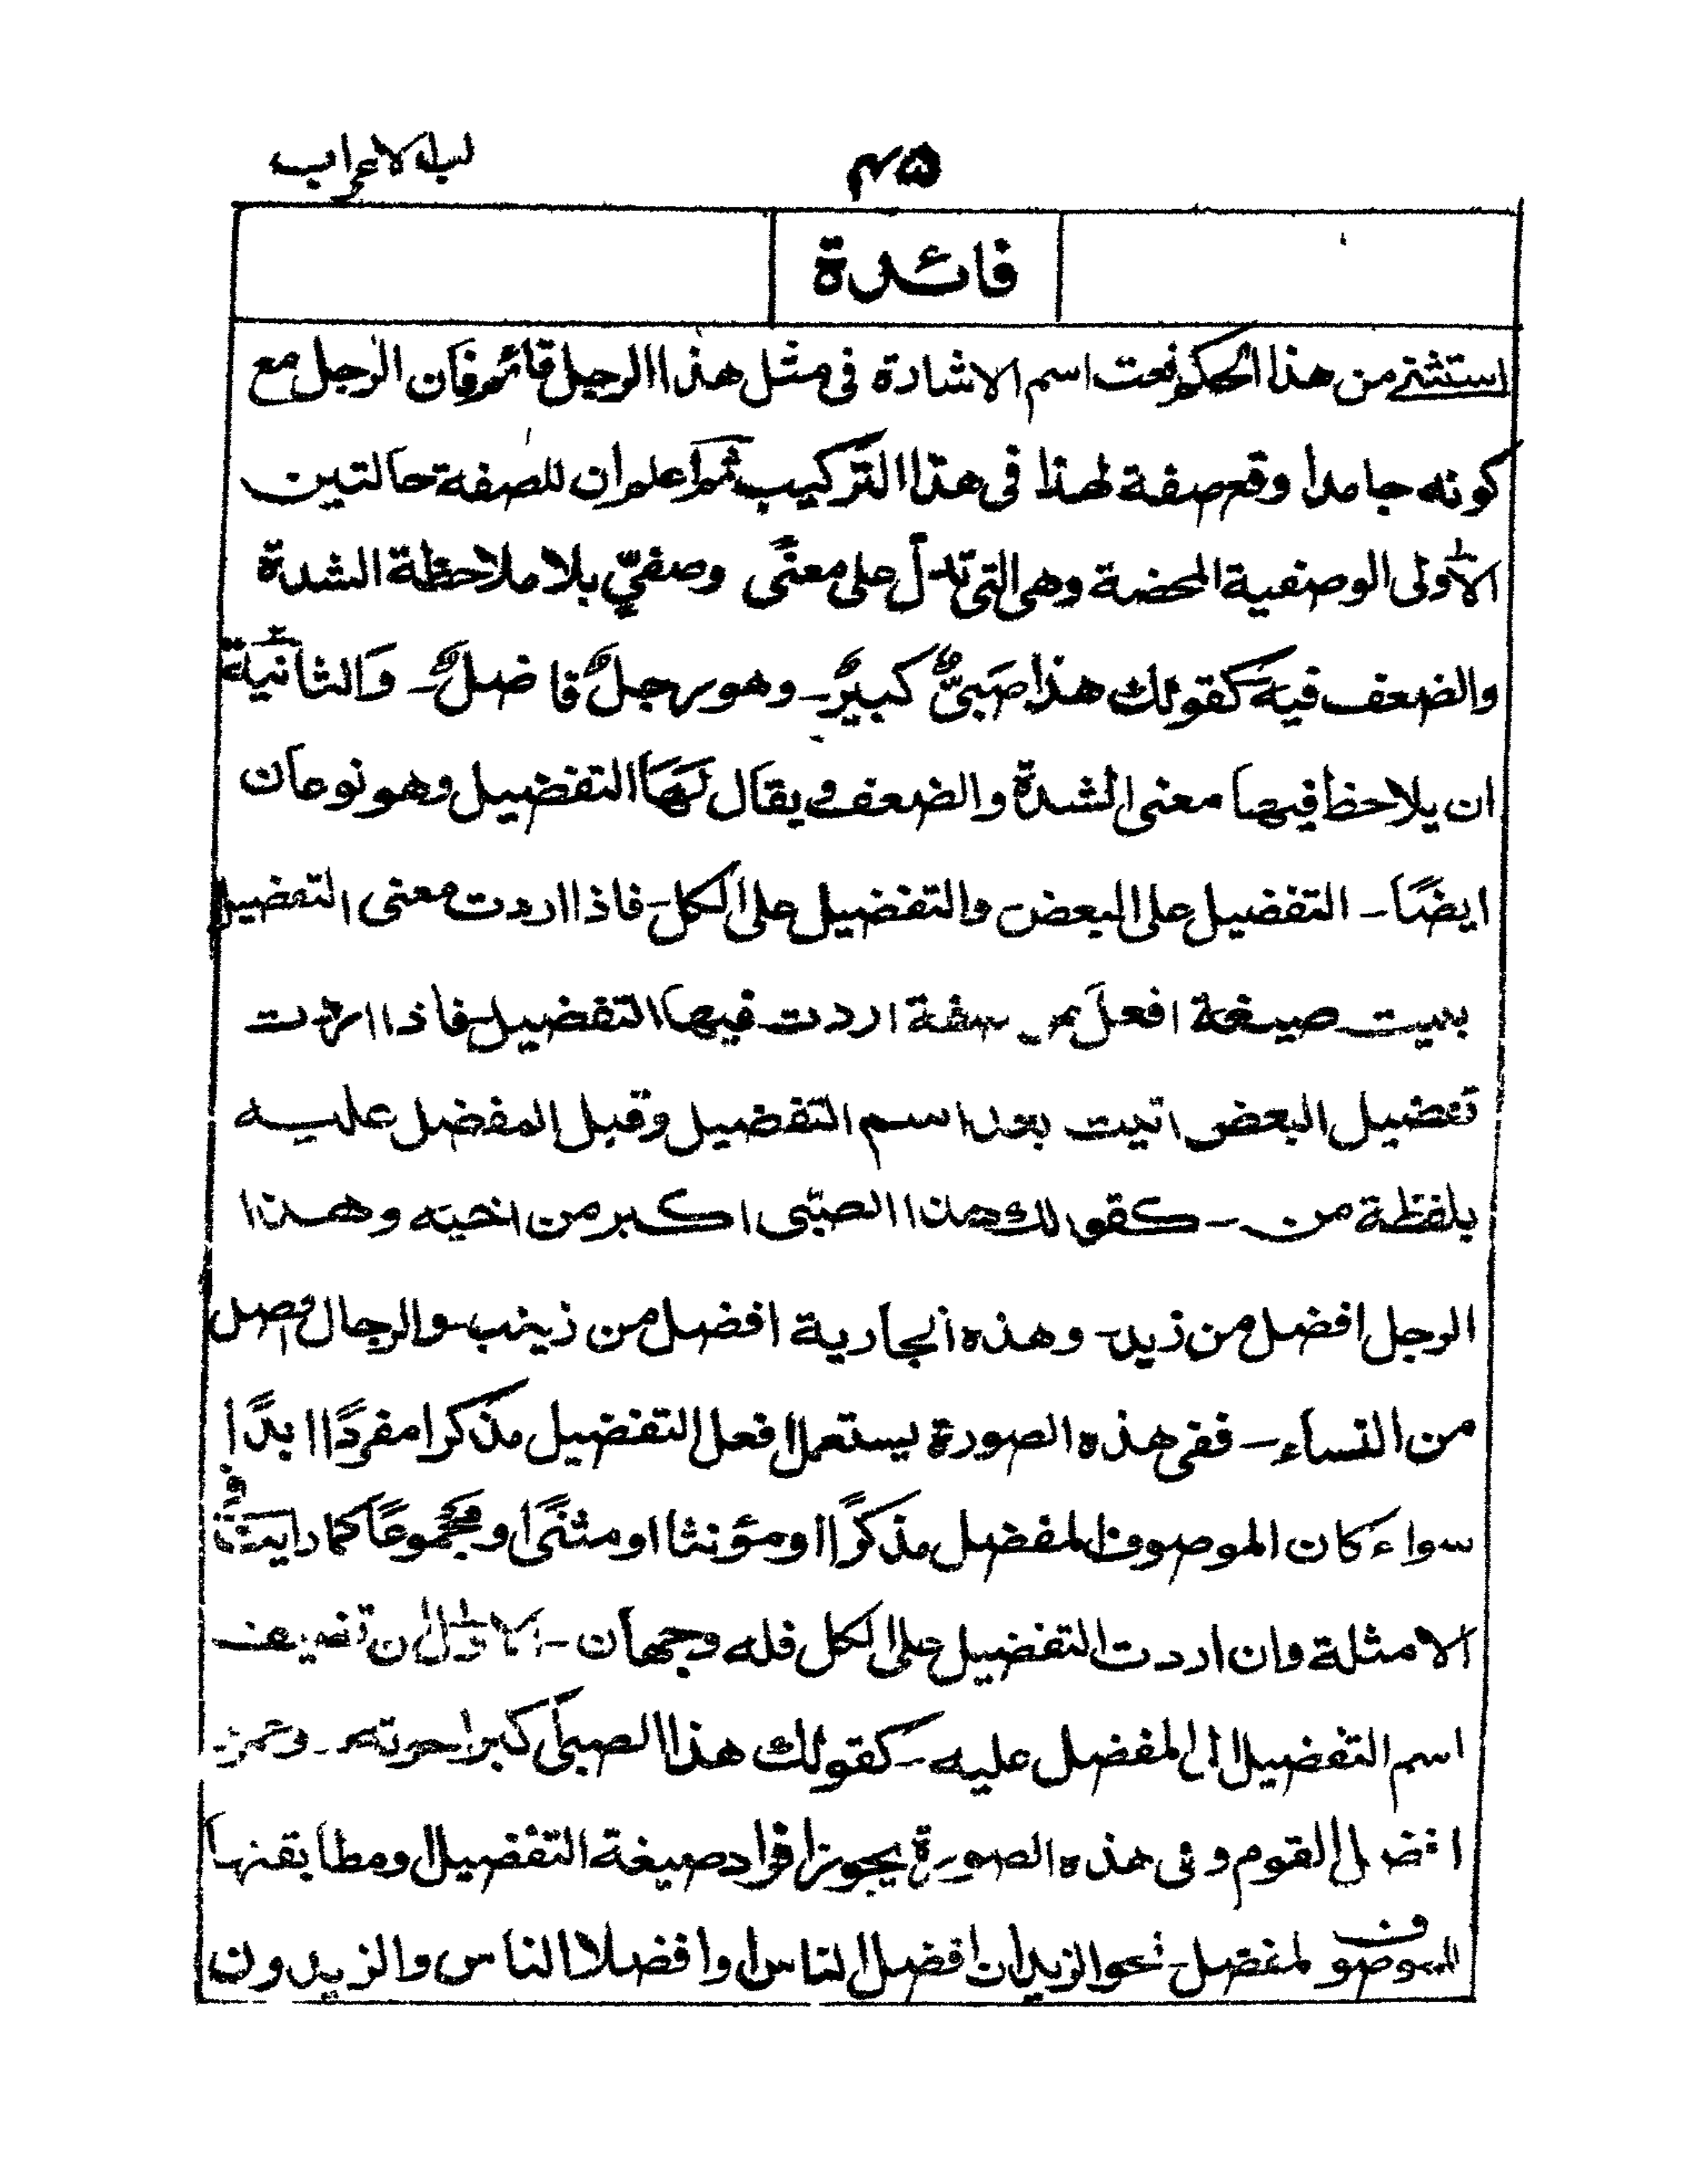 لب الاعراب
٤٥
فائدة
استثنى من هذا الحكم نعت اسم الاشارة فى مثل هذا الرجل قائم فان الرجل مع
كونه جامدا وقع صفة لهذا فى هذا التركيب ثم اعلم ان للصفة حالتين
الاولى الوصفية المحضة وهى التى تدل على معنًى وصفىّ بلا ملاحظة الشدة
والضعف فيه كقولك هذا صبىٌّ كبيرٌ - وهو رجلٌ فاضلٌ - والثانية
ان يلاحظ فيها معنى الشدة والضعف ويقال لها التفضيل وهو نوعان
ايضًا - التفضيل على البعض والتفضيل على الكل - فاذا اردت معنى التفضيل
بنيت صيغة افعل من صفة اردت فيها التفضيل - فاذا اردت
تفضيل البعض اتيت بعد اسم التفضيل وقبل المفضل عليه
بلفظة من - كقولك هذا الصبّى اكبر من اخيه وهذا
الرجل افضل من زيد - وهذه الجارية افضل من زينب - والرجال افضل
من النساء - ففى هذه الصورة يستعمل افعل التفضيل مذكرا مفردًا ابدًا
سواء كان الموصوف المفضل مذكرًا او مؤنثا او مثنًى او مجموعًا كما رايت فى
الامثلة وان اردت التفضيل على الكل فله وجهان - الاول ان تضيف
اسم التفضيل الى المفضل عليه - كقولك هذا الصبى اكبر اخوته -
افضل القوم وفى هذه الصورة يجوز افراد صيغة التفضيل ومطابقتها
الموصوف المفضل - نحو الزيدان افضل الناس او افضلا الناس والزيدون